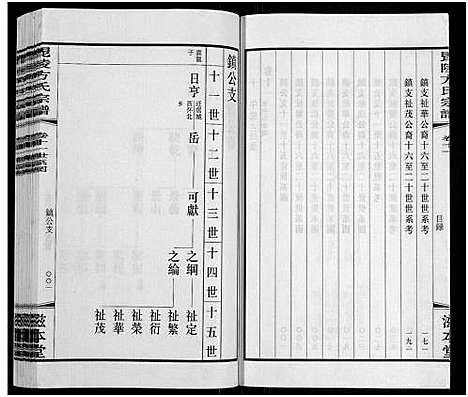 毘陵方氏宗譜
卷十一
目錄
滋本堂
鎮支祉華公裔十六至二十世世系考
一七一
鎮支祉茂公裔十六至二十世世系考
一九一
鎮公支
十一世
十二世
十三世
十四世
十五世
日亨
岳
可獻
之綱
之綸
祉定
祉繁
祉衍
祉榮
祉華
祉茂
毘陵方氏宗譜
卷十一
世系圖
鎮公支
〇〇一
滋本堂